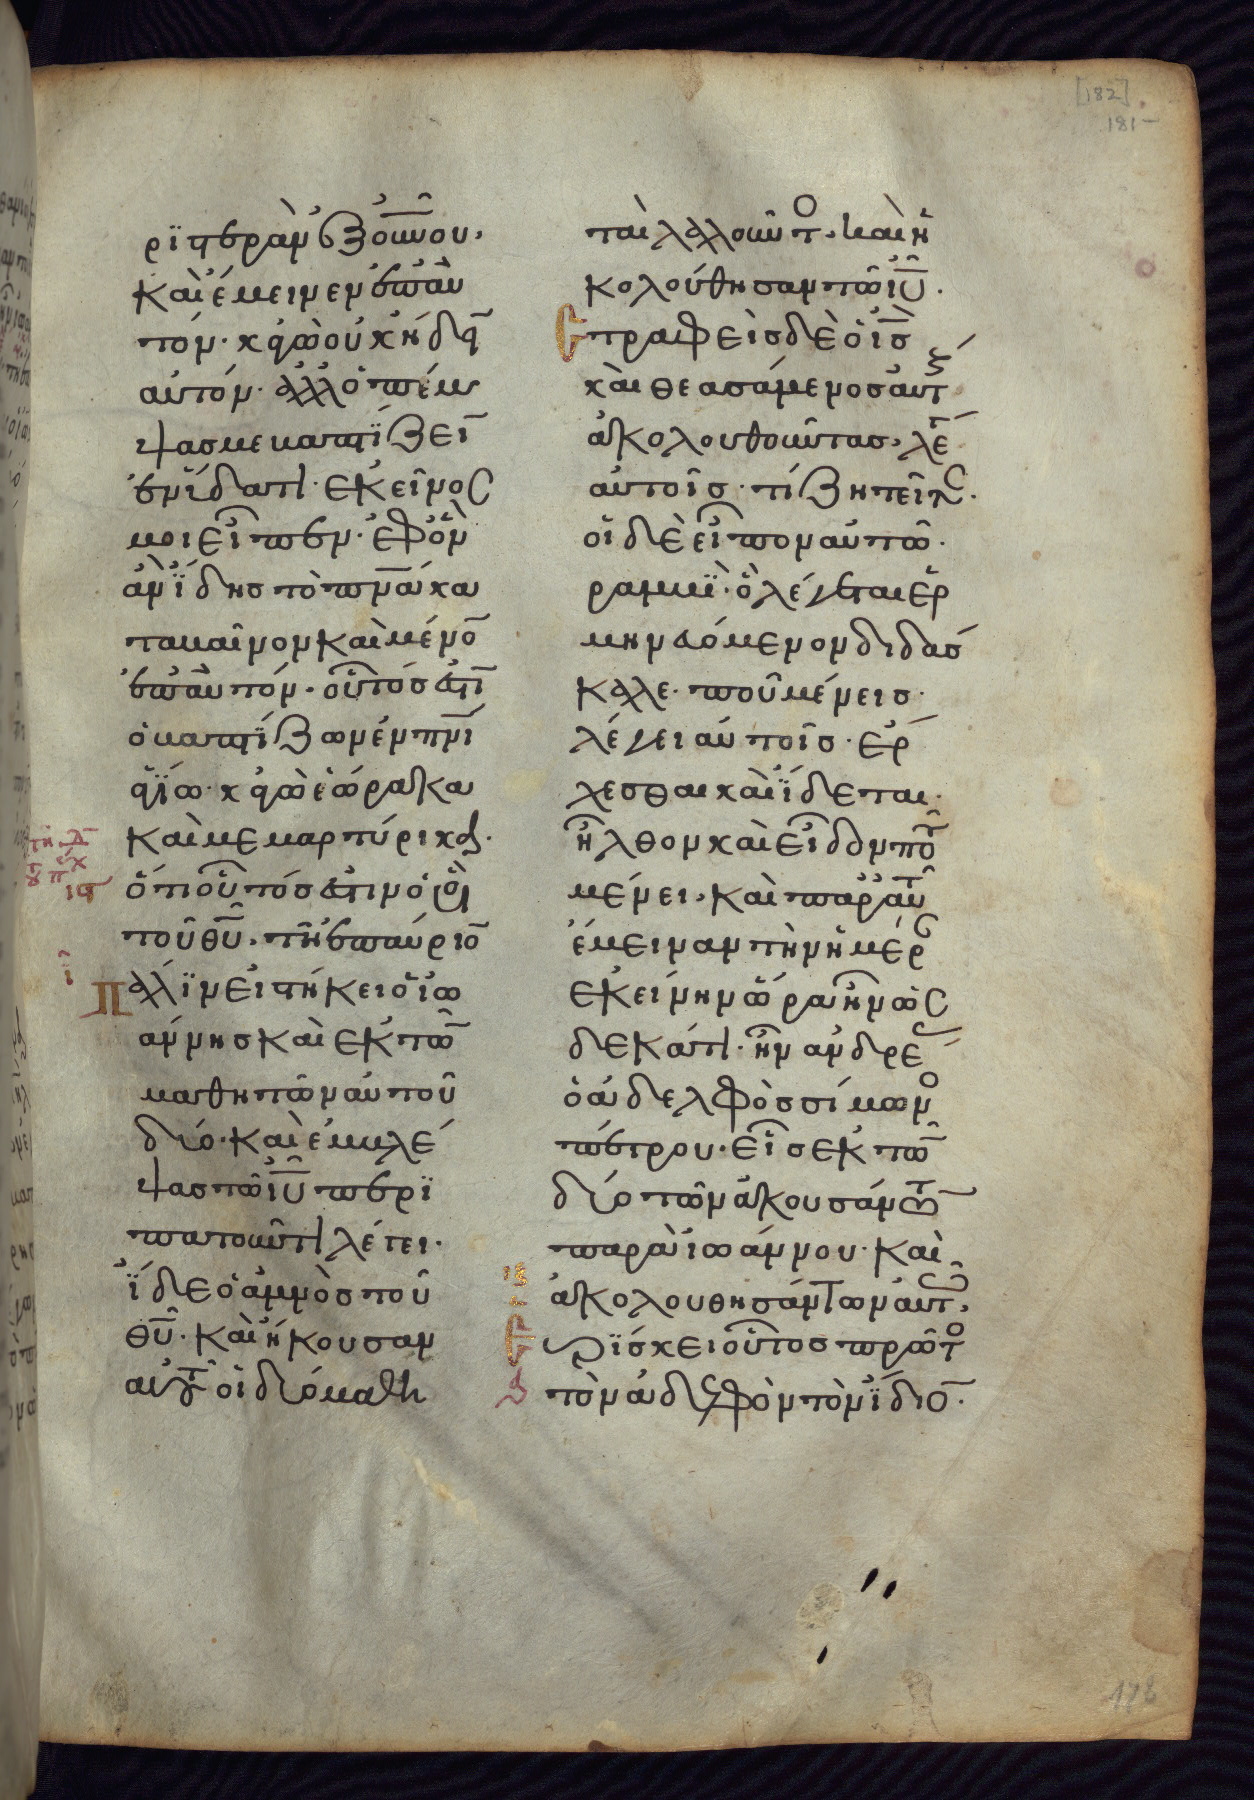 [182]
181
ριστερὰν ἐξ οὐ̅νου.
καὶ ἔμεινεν ἐπ αὐ
τόν· κἀγὼ οὐκ ᾔδειν
αὐτόν· ἀλλ ὁ πέμ
ψας με βαπτίζειν
ἐν ὕδατι· ἐκεῖνος
μοι εἶπεν· ἐφ ὃν
ἂν ἴδης τὸ π̅ν̅α̅ κα
ταβαῖνον καὶ μένο̅
ἐπ αὐτόν· οὗτός ἐστι̅
ὁ βαπτίζων ἐν π̅ν̅ι̅
ἁγίω· κἀγὼ ἑώρακα
καὶ μεμαρτύρικα·
ὅτι οὗτός ἐστιν ὁ υἱὸς
τοῦ θ̅υ̅· τῆ ἐπαύριο̅
Πάλιν εἱστήκει ὁ ἰω
άννης καὶ ἐκ τῶ̅
μαθητῶν αὐτοῦ
δύο· καὶ ἐμβλέ
ψας τῶ ι̅υ̅ περι
πατοῦντι λέγει·
ἴδε ὁ ἀμνὸς τοῦ
θ̅υ̅· καὶ ἤκουσαν
αὐτοῦ οἱ δύο μαθη
ταὶ λαλοῦντος· καὶ ἠ
κολούθησαν τῶ ι̅υ̅.
Στραφεὶς δὲ ὁ ι̅ς̅
καὶ θεασάμενος αὐτοὺς
ἀκολουθοῦντας· λέγει
αὐτοῖς· τί ζητεῖτε.
οἱ δὲ εἶπον αὐτῶ.
ραββϊ· ὃ λέγεται ἑρ
μηνευόμενον διδάσ
καλε· ποῦ μένεις·
λέγει αὐτοῖς· ἔρ
χεσθαι καὶ ἴδεται·
ἦλθον καὶ εἶδον ποῦ
μένει· καὶ παρ αὐτῶ
ἔμειναν τὴν ἡμέραν
ἐκείνην ὥρα ἦν ὡς
δεκάτη· ἦν ἀνδρέας
ὁ ἀδελφὸς σίμωνος
πέτρου· εἷς ἐκ τῶ̅
δύο τῶν ἀκουσάντων
παρὰ ἰωάννου· καὶ
ἀκολουθησάντων αὐτῶ·
Εὑρίσκει οὗτος πρῶτος
τὸν ἀδελφὸν τὸν ἴδιο̅.
178